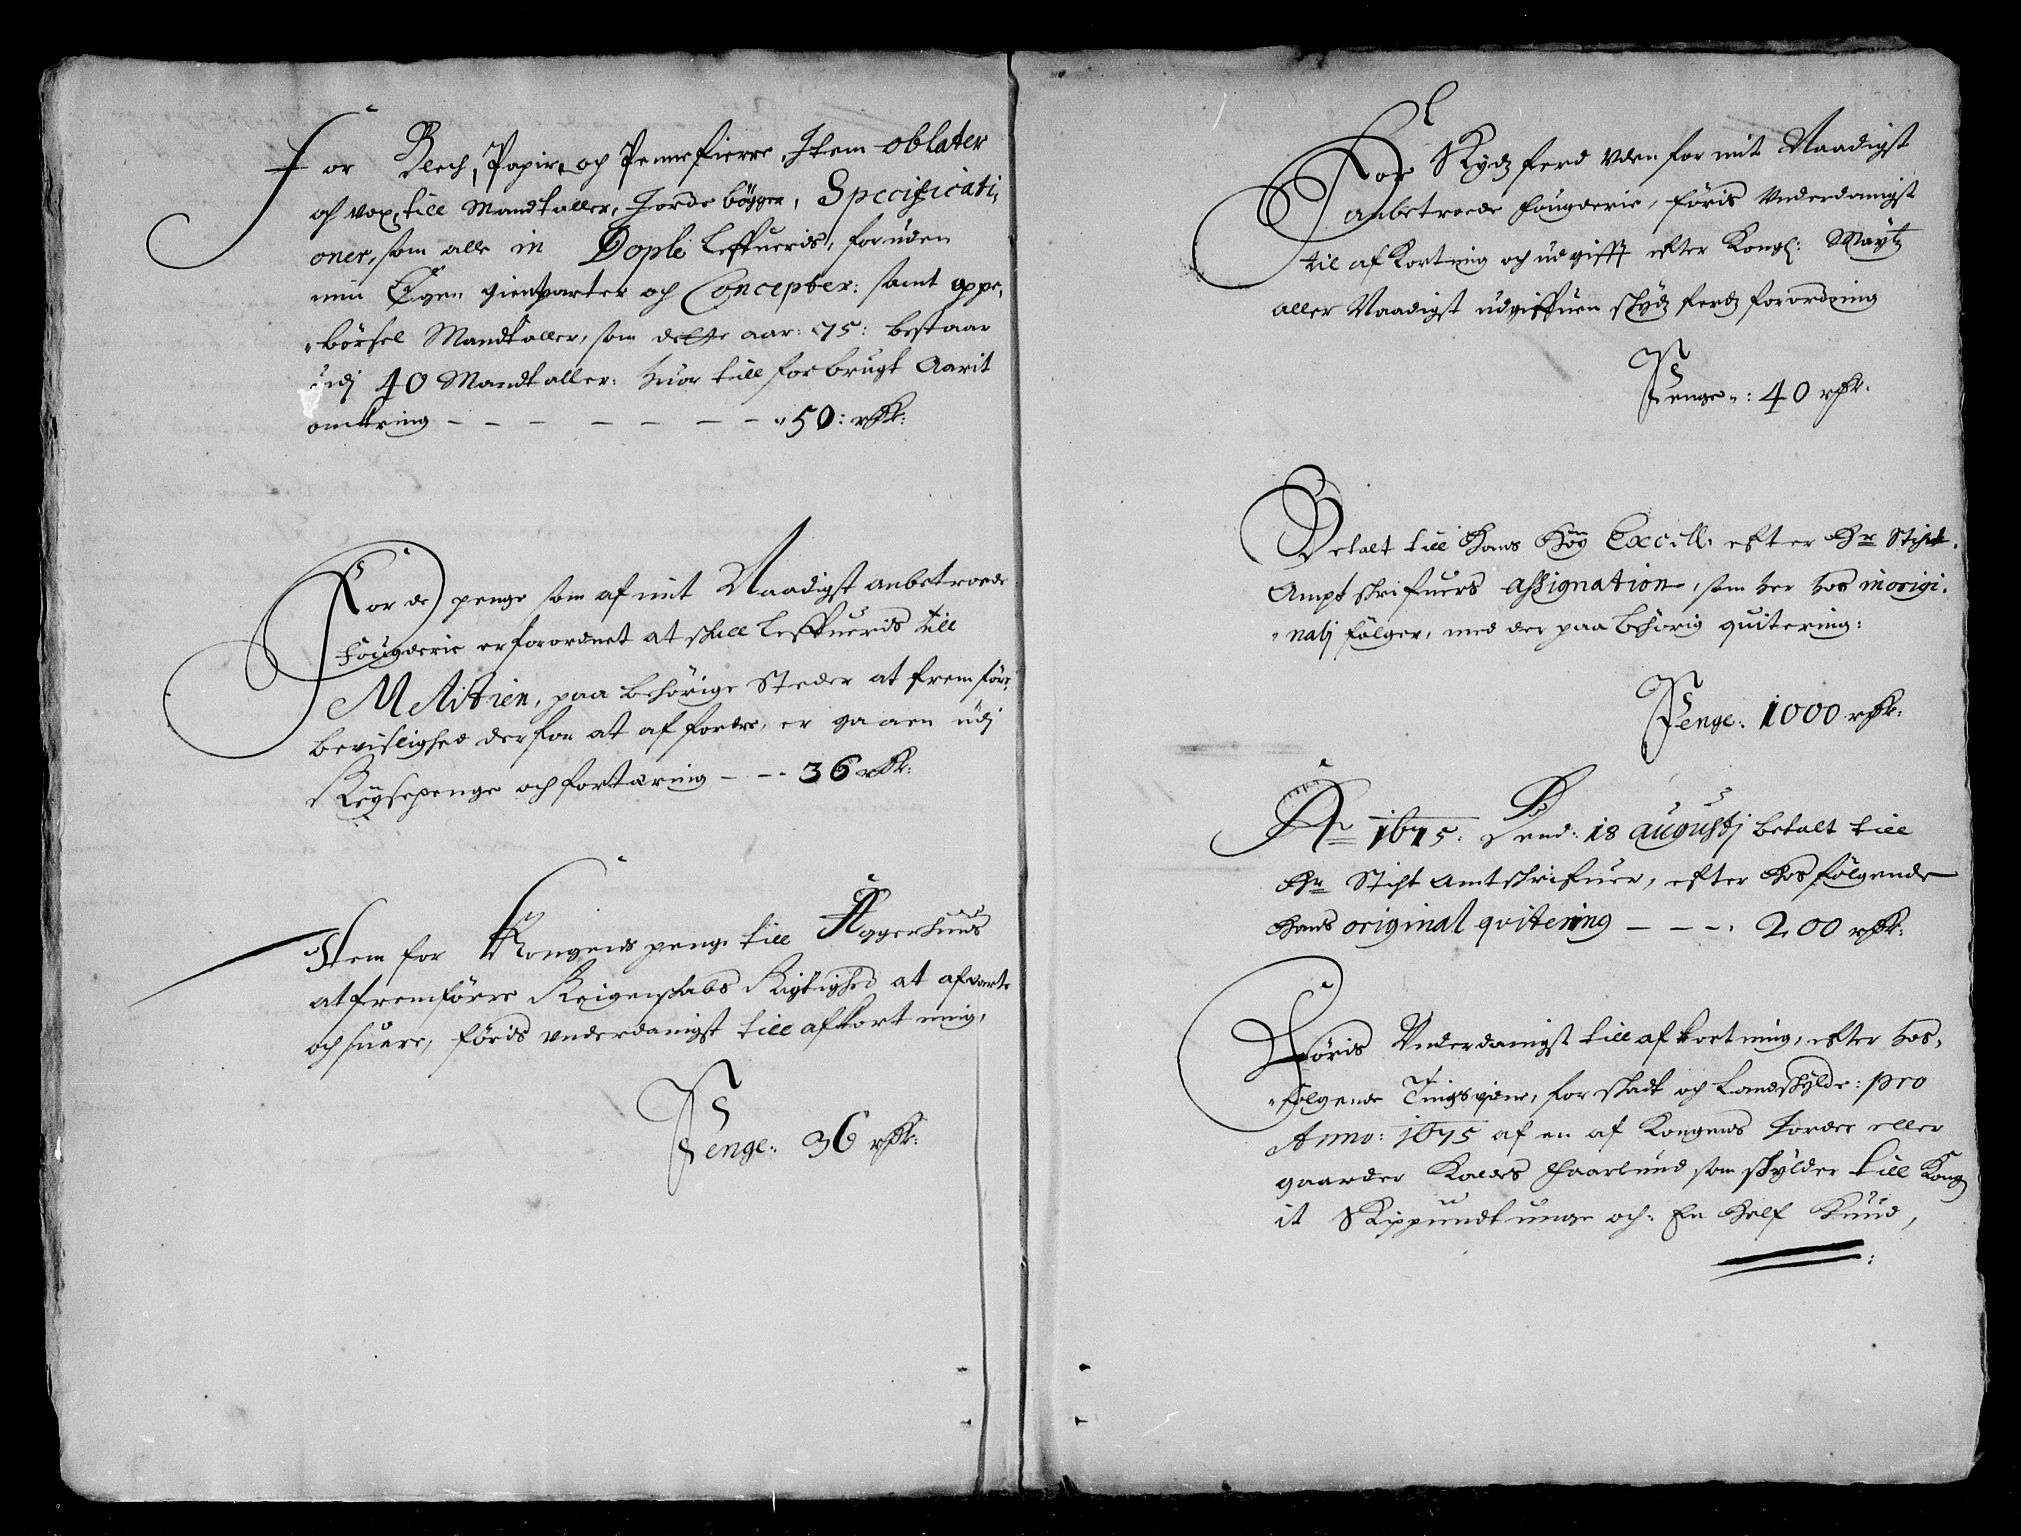 For Blech, Papir, och Pennefierre, Item oblater
och vox, till Mandtaller, Jordebögger, Specificati,
oner, som alle in Dople leffueris, foruden
min Egen gienparter och Concepter: samt oppe,
börsel Mandtaller, som dette aar: 75: bestaar
udj 40 Mandtaller: huor till forbrugt Aarit
omkring - - - - - - - 50: rdr:
For de penge som af mit Naadigst anbetroede
Fougderie er forordnet at skall leffueris till
Militien, paa behörige Steder at fremföre,
bevislighed derfor at affordre, er gaaen udj
Reysepenge och fortæring - - - 36 rdr:
Item for Kongens penge till Aggershuus
at fremförre Reigenskabs Rigtighed at afvarte
och suare, föris underdanigst till afkortning,
Penge: 36 rdr:
For Skydzferd uden for mit Naadigst
anbetroede fougderie, föris Underdanigst
til afkortning och udgifft efter Kongl: Maytz
aller Naadigst udgiffuen skydzferdz forordning
Penge: 40 rdr:
Betalt till Hans Höy Excell: efter Hr Sticht
Ampt skrifuers Assignation, som her hos in origi,
nalj fölger, med der paa behörig quitering:
Penge: 1000 rdr:
Ao 1675. Dend: 18 augustj betalt till
Hr Sticht Amtskrifuer, efter hosfölgende
Hans original qvitering - - - 200 rdr:
Föris Underdanigst till afkortning, efter hos,
fölgende Tingsvidne, for skatt och landskylde: pro
Anno: 1675 af en af Kongens Jorder eller
gaarder Kaldes Haarlund som skylder till Kong
it Skippund tunge och: En Half Huud,